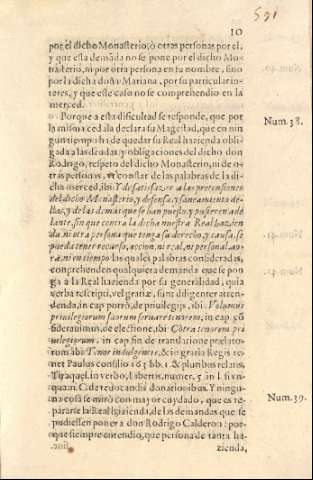 591
10
por el dicho Monasterio, ò otras personas por el,
y que esta demãda no se pone por el dicho Mo-
nasterio, ni por otra persona en su nombre, sino
por la dicha doña Mariana, por su particular in-
teres, y que este caso no se comprehendio en la
merced.
Porque a esta dificultad se responde, que por
la misma cedula declara su Magestad, que en nin
gun tiempo ha de quedar su Real hazienda obli-
gada a las deudas y obligaciones del dicho don
Rodrigo, respeto del dicho Monasterio, ni de o-
tras personas, vt constat de las palabras de la di-
cha merced, ibi: Y de satisfazer a las pretensiones
del dicho Monasterio, y defensa, y saneamiento de-
llas, y de las demas que se han puesto, y pusieren adè
lante, sin que contra la dicha nuestra Real hazien
da, ni otra persona que tenga su derecho, y causa, se
pueda tener recurso, accion, ni real, ni personal, ao-
ra, ni en tiempo las quales palabras consideradas,
comprehenden qualquiera demanda que se pon
ga a la Real hazienda por su generalidad, quia
verba rescripti, vel gratiæ, sunt diligenter atten-
denda, in cap. porrò, de priuilegijs, ibi: Volumus
priuilegiorum suorum seruare tenorem, in cap. cõ
siderauimus, de electione, ibi: Cõtra tenorem pri
uilegiorum, in cap. fin. de translatione prælato-
rum ibi: Tenor indulgentiæ, & in gratia Regis te-
net Paulus consilio 163. lib. 1. & pluribus relatis,
Tiraquel. in verbo, Libertis, numer. 5. in l. si vn-
quam, C. de reuocandis donationibus. Y ningu-
na cosa se mirò con mayor cuydado, que es re-
pararse la Real hazienda, de las demandas que se
pudiessen poner a don Rodrigo Calderon: por-
que siempre entendio, que persona de tanta ha-
zienda,
Num. 38.
Num. 39.